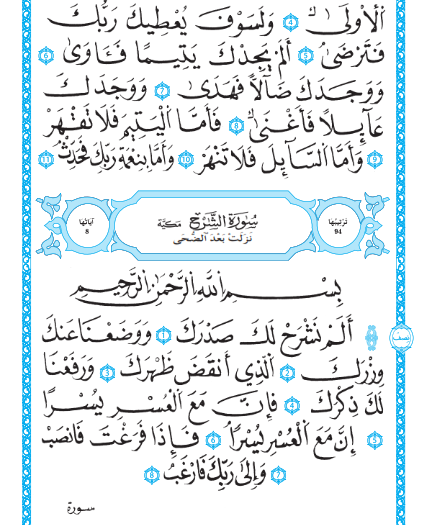 اَلْأُولَىٰ ٤ وَلَسَوْفَ يُعْطِيكَ رَبُّكَ
فَتَرْضَىٰ ٥ أَلَمْ يَجِدْكَ يَتِيمًا فَـَٔاوَىٰ ٦
وَوَجَدَكَ ضَآلًّا فَهَدَىٰ ٧ وَوَجَدَكَ
عَآئِلًا فَأَغْنَىٰ ٨ فَأَمَّا الْيَتِيمَ فَلَا تَقْهَرْ
٩ وَأَمَّا السَّآئِلَ فَلَا تَنْهَرْ ١٠ وَأَمَّا بِنِعْمَةِ رَبِّكَ فَحَدِّثْ ١١
تَرْتِيبُهَا 94 سُورَةُ الشَّرْحِ مَكِّيَّة آيَاتُهَا 8
نَزَلَتْ بَعْدَ الضُّحَى
بِسْمِ اللَّهِ الرَّحْمَٰنِ الرَّحِيمِ
أَلَمْ نَشْرَحْ لَكَ صَدْرَكَ ١ وَوَضَعْنَا عَنكَ
وِزْرَكَ ٢ الَّذِي أَنقَضَ ظَهْرَكَ ٣ وَرَفَعْنَا
لَكَ ذِكْرَكَ ٤ فَإِنَّ مَعَ الْعُسْرِ يُسْرًا
٥ إِنَّ مَعَ الْعُسْرِ يُسْرًا ٦ فَإِذَا فَرَغْتَ فَانصَبْ
٧ وَإِلَىٰ رَبِّكَ فَارْغَب ٨
نصف
سورة